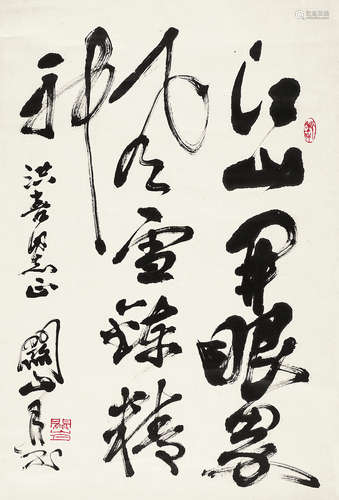 江山开眼界
风雪鍊精
神
洪喜同志正
關山月